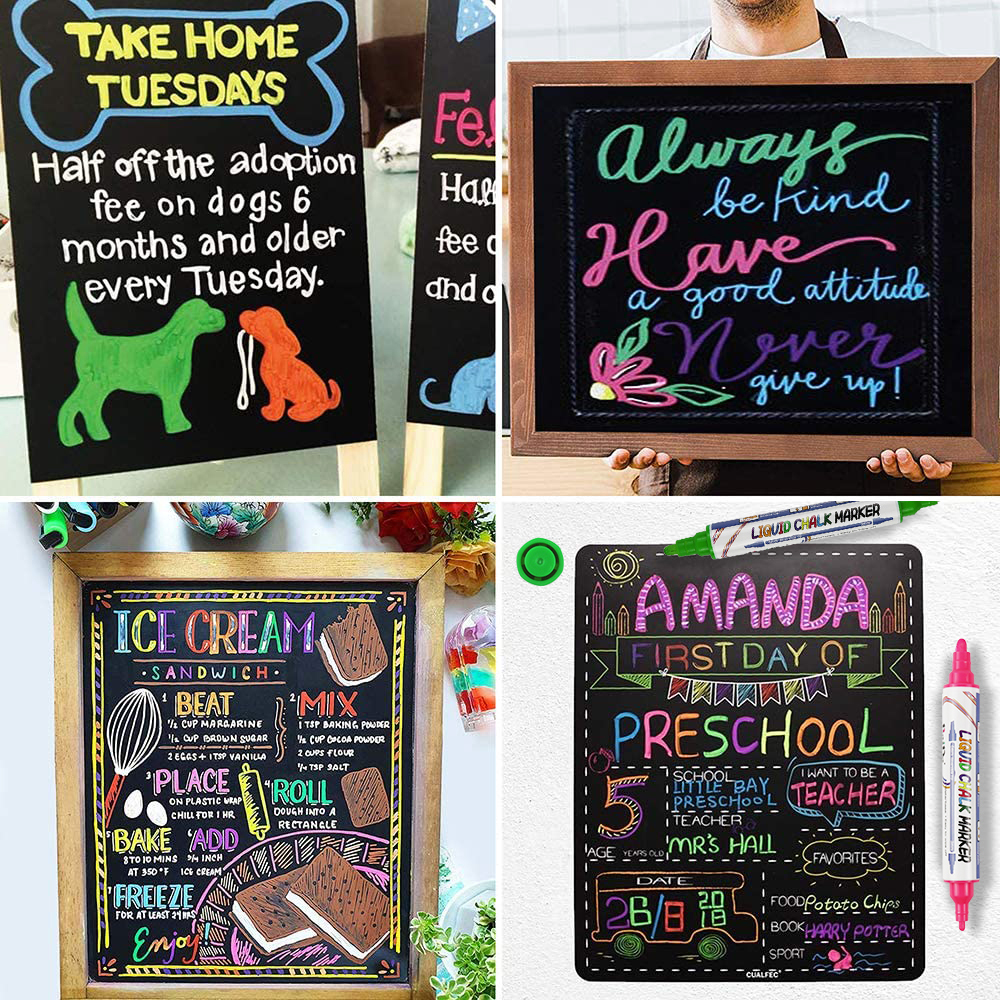 TAKE HOME
TUESDAYS
Half off the adoption
fee on dogs 6
months and older
every Tuesday.
Fel
Half
fee o
and o
Always
be kind
Have
a good attitude
Never
give up!
ICE CREAM
· SANDWICH ·
1 BEAT
1/2 CUP MARGARINE
1/2 CUP BROWN SUGAR
2 EGGS + 1 TSP VANILLA
2 MIX
1 TSP BAKING POWDER
1/2 CUP COCOA POWDER
2 CUPS FLOUR
1/4 TSP SALT
3 PLACE
ON PLASTIC WRAP
CHILL FOR 1 HR
4 ROLL
DOUGH INTO A
RECTANGLE
5 BAKE
8 TO 10 MINS
AT 350°F
6 ADD
3/4 INCH
ICE CREAM
7 FREEZE
FOR AT LEAST 24 HRS
Enjoy!!
LIQUID CHALK MARKER
AMANDA
FIRST DAY OF
PRESCHOOL
5
AGE YEARS OLD
SCHOOL
LITTLE BAY
PRESCHOOL
TEACHER
MR'S HALL
I WANT TO BE A
TEACHER
DATE
26/8 2018
FAVORITES
FOOD Potato Chips
BOOK HARRY POTTER
SPORT
CUALFEC
LIQUID CHALK MARKER